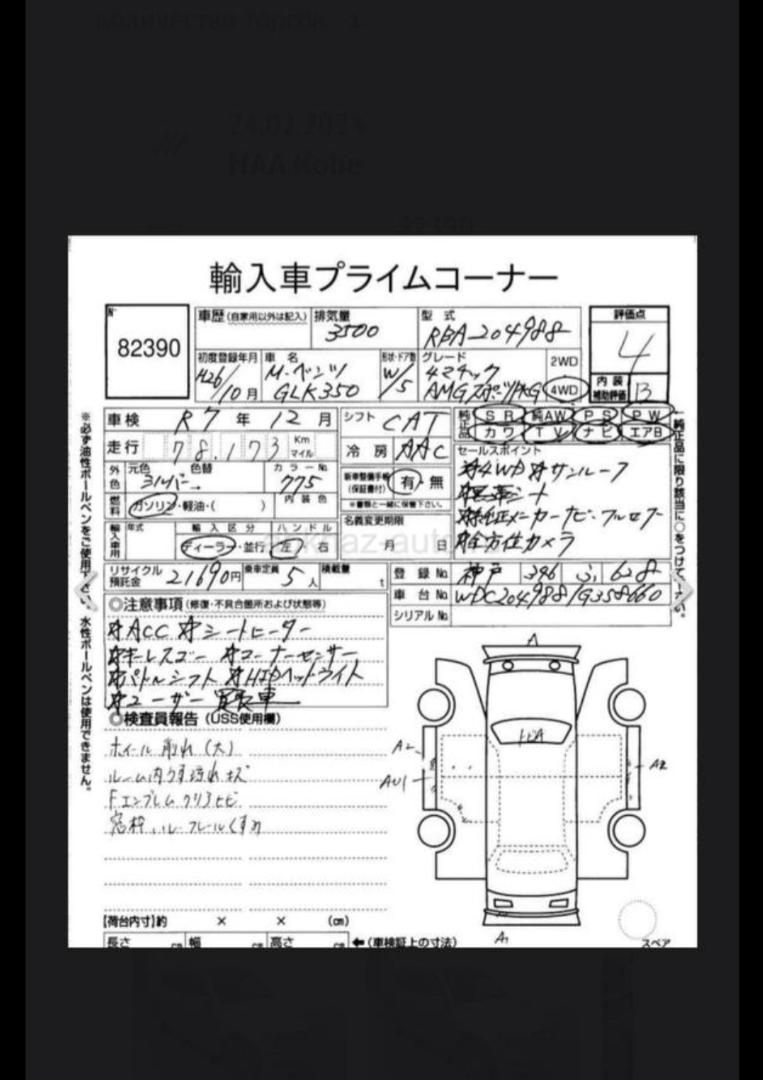 24.02.2024
HAA Kobe
82390
輸入車プライムコーナー
82390
車歴(自家用以外は記入)
排気量
3500
型式
RBA-204988
評価点
4
初度登録年月
H26/10月
車名
M・ベンツ
GLK350
形状・ドア数
W/5
グレード
4マチック
AMGスポーツPKG
2WD
4WD
内装
補助評価
B
車検 R7年12月
シフト CAT
純正品
SR 純AW PS PW
カワ TV ナビ エアB
走行 78,173 Km マイル
冷房 AAC
セールスポイント
外色 元色 シルバー→ 色替
カラーNo. 775
新車整備手帳(保証書付) 有・無
※書類と一緒に保管下さい。
☆4WD ☆サンルーフ
☆黒革シート
燃料 ガソリン・軽油・( )
内装色
☆純正メーカーナビ・フルセグ
輸入車用 年式
輸入区分
ディーラー・並行
ハンドル
左 右
名義変更期限
月 日
☆全方位カメラ
リサイクル預託金 21690円
乗車定員 5人
積載量 t
登録No. 神戸 346 ふ 628
車台No. WDC2049881G358660
シリアルNo.
◎注意事項(修復・不具合箇所および状態等)
☆ACC ☆シートヒーター
☆キーレスゴー ☆コーナーセンサー
☆パドルシフト ☆HIDヘッドライト
☆ユーザー買取車
◎検査員報告(USS使用欄)
ホイール削れ(大)
ルーム内うす汚れ キズ
Fエンブレムクリアヒビ
窓枠、ルーフレールくすみ
A
トビA
A2
AU1
A2
A1
スペア
【荷台内寸】約 × × (㎝)
長さ ㎝ 幅 ㎝ 高さ ㎝ ←(車検証上の寸法)
※必ず油性ボールペンをご使用下さい。水性ボールペンは使用できません。
←純正品に限り該当に○をつけて下さい。